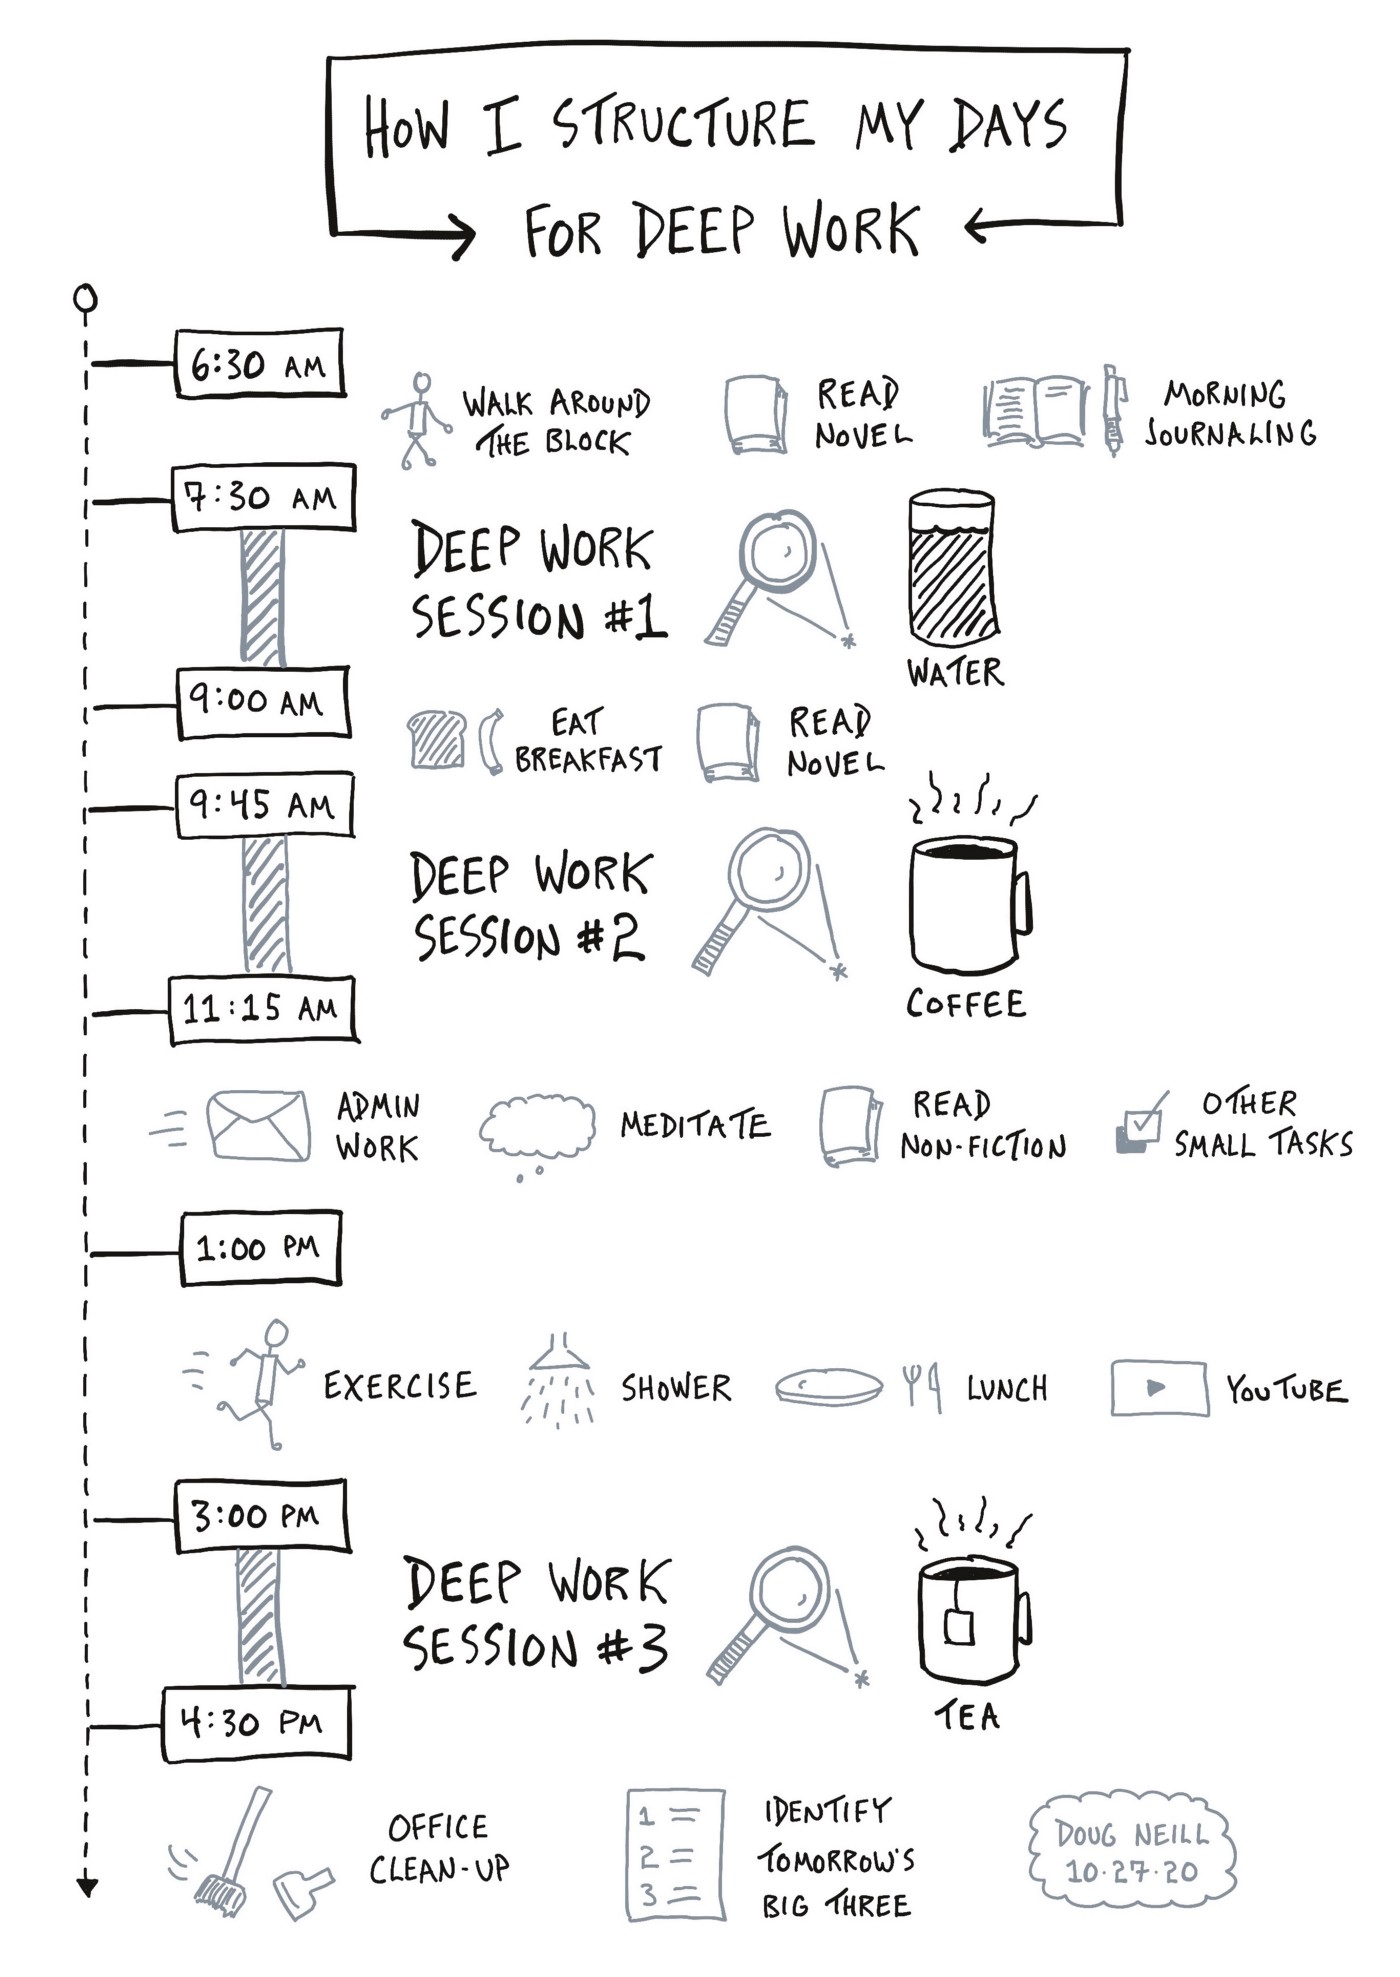 HOW I STRUCTURE MY DAYS
FOR DEEP WORK
6:30 AM
WALK AROUND
THE BLOCK
READ
NOVEL
MORNING
JOURNALING
7:30 AM
DEEP WORK
SESSION #1
WATER
9:00 AM
EAT
BREAKFAST
READ
NOVEL
9:45 AM
DEEP WORK
SESSION #2
COFFEE
11:15 AM
ADMIN
WORK
MEDITATE
READ
NON-FICTION
OTHER
SMALL TASKS
1:00 PM
EXERCISE
SHOWER
LUNCH
YOUTUBE
3:00 PM
DEEP WORK
SESSION #3
TEA
4:30 PM
OFFICE
CLEAN-UP
1
2
3
IDENTIFY
TOMORROW'S
BIG THREE
DOUG NEILL
10·27·20